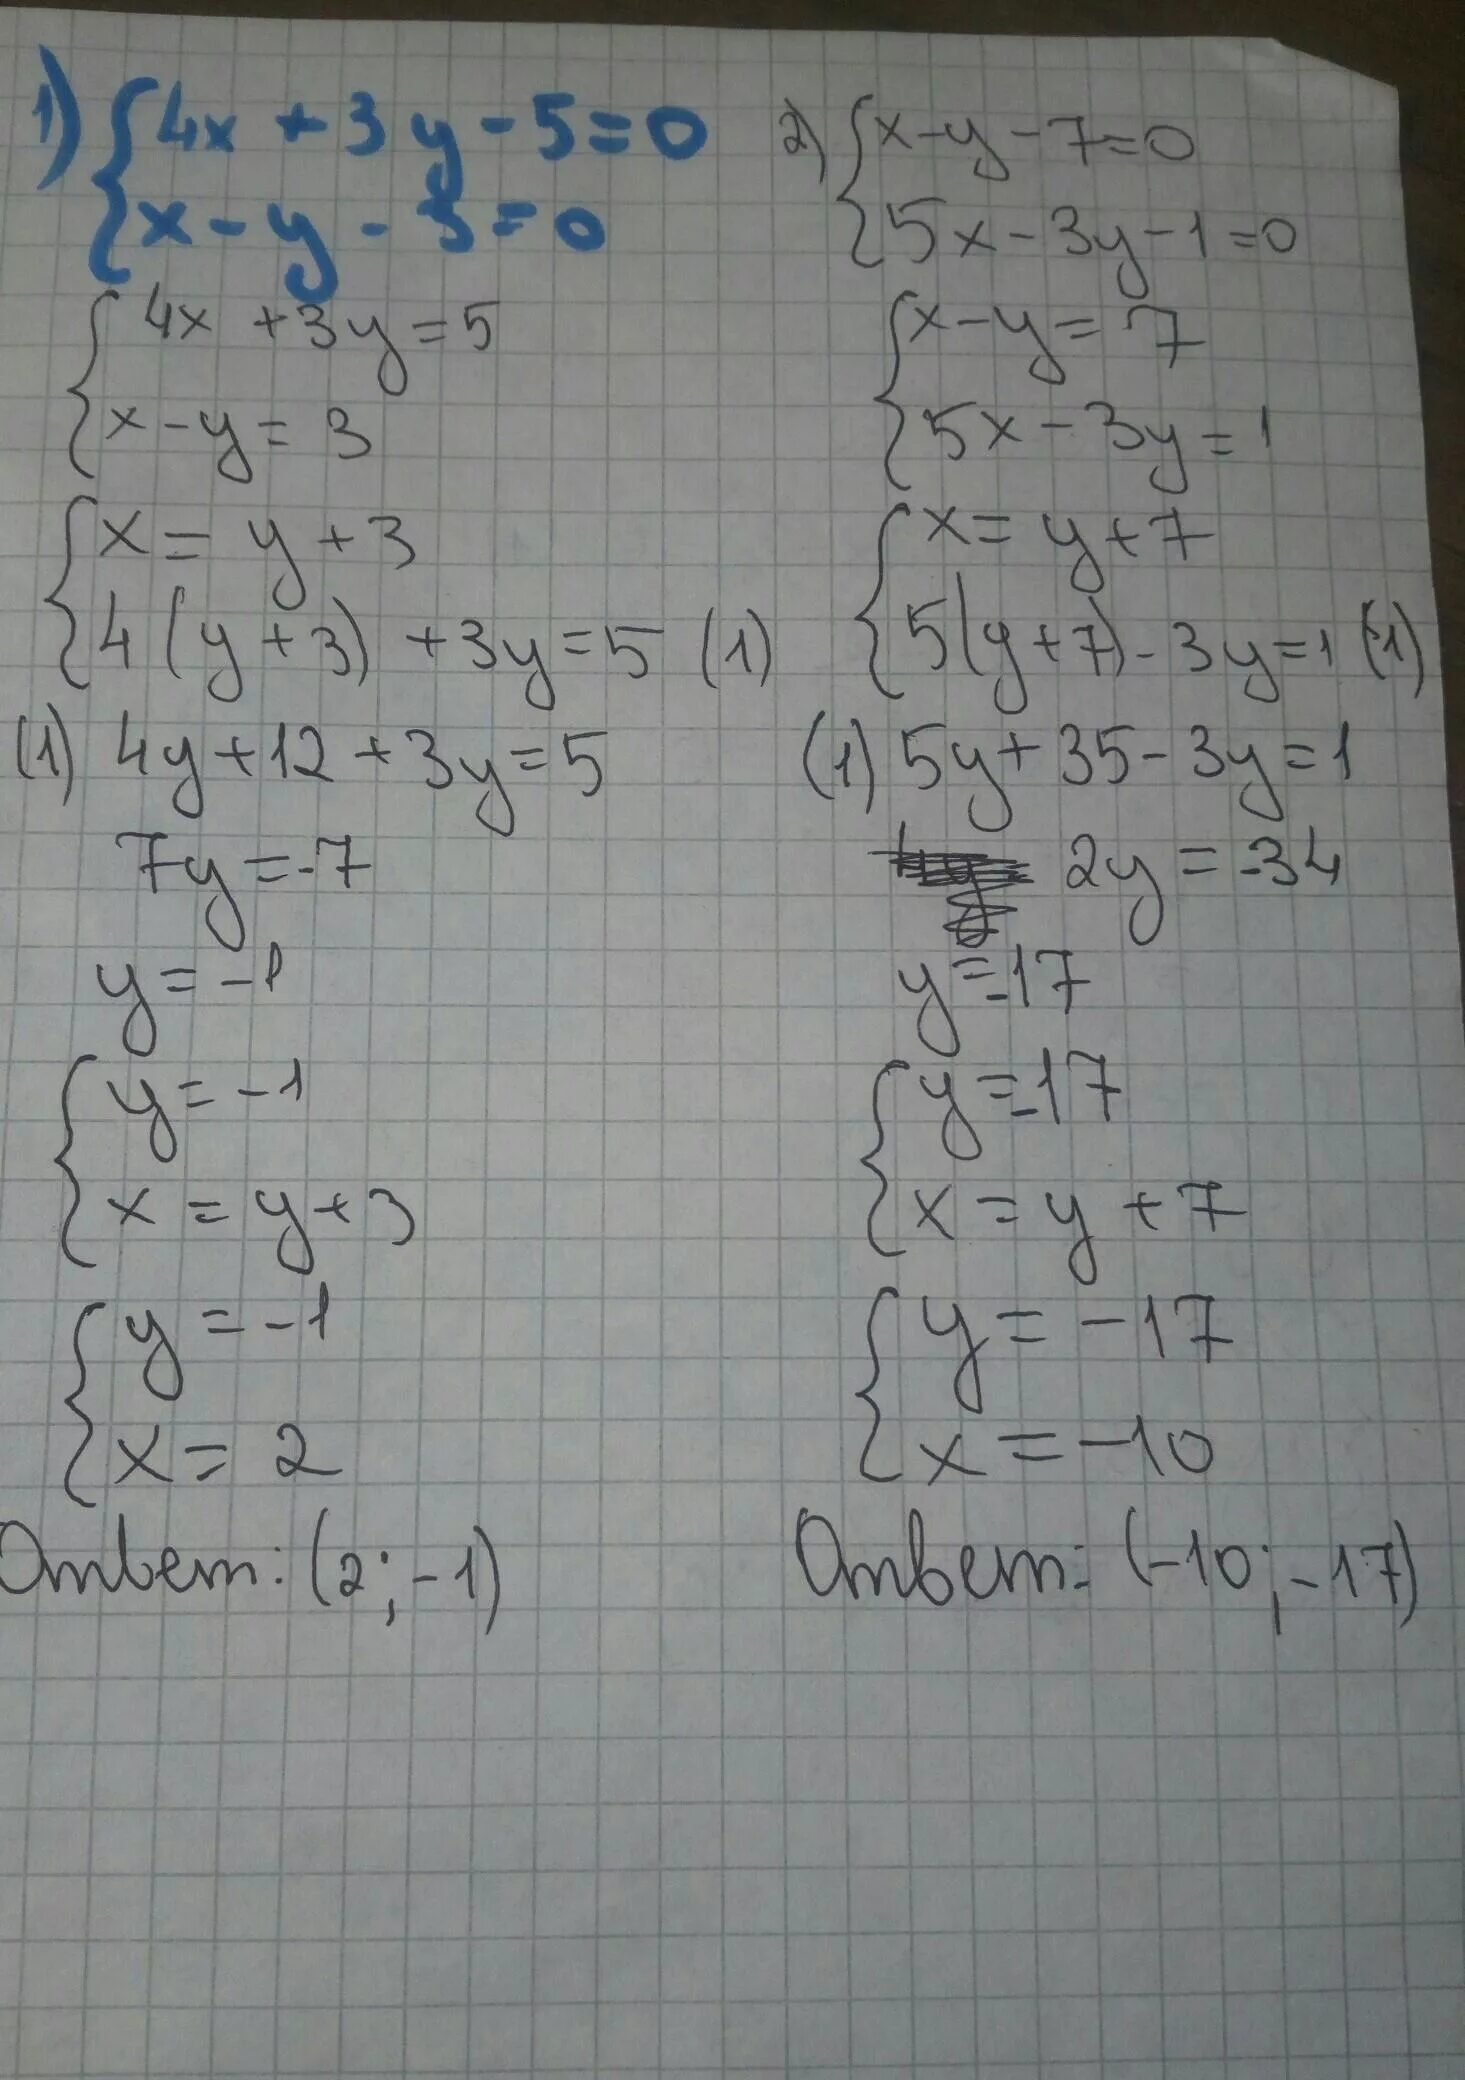 1) {4x + 3y - 5 = 0
x - y - 3 = 0
{4x + 3y = 5
x - y = 3
{x = y + 3
4(y + 3) + 3y = 5 (1)
(1) 4y + 12 + 3y = 5
7y = -7
y = -1
{y = -1
x = y + 3
{y = -1
x = 2
Ответ: (2; -1)
2) {x - y - 7 = 0
5x - 3y - 1 = 0
{x - y = 7
5x - 3y = 1
{x = y + 7
5(y + 7) - 3y = 1 (1)
(1) 5y + 35 - 3y = 1
2y = -34
y = -17
{y = -17
x = y + 7
{y = -17
x = -10
Ответ: (-10; -17)